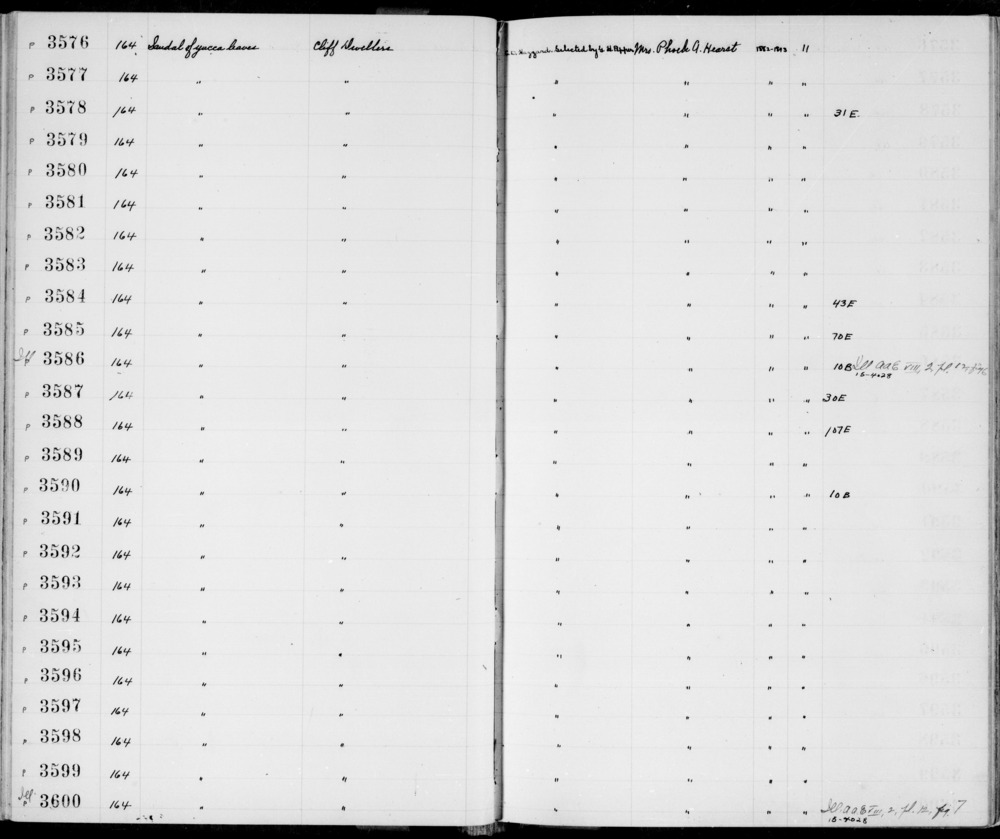 P 3576 164 Sandal of yucca leaves Cliff Dwellers Selected by G. H. Pepper Mrs. Phoebe A. Hearst 11
P 3577 164 " " " " " "
P 3578 164 " " " " " " 31E
P 3579 164 " " " " " "
P 3580 164 " " " " " "
P 3581 164 " " " " " "
P 3582 164 " " " " " "
P 3583 164 " " " " " "
P 3584 164 " " " " " " 43E
P 3585 164 " " " " " " 70E
Ill P 3586 164 " " " " " " 10B Ill AAE VIII, 2, pl.
15-4028
P 3587 164 " " " " " " 30E
P 3588 164 " " " " " " 107E
P 3589 164 " " " " " "
P 3590 164 " " " " " " 10B
P 3591 164 " " " " " "
P 3592 164 " " " " " "
P 3593 164 " " " " " "
P 3594 164 " " " " " "
P 3595 164 " " " " " "
P 3596 164 " " " " " "
P 3597 164 " " " " " "
P 3598 164 " " " " " "
P 3599 164 " " " " " "
Ill P 3600 164 " " " " " " Ill AAE VIII, 2, pl. 12, fig 7
15-4028